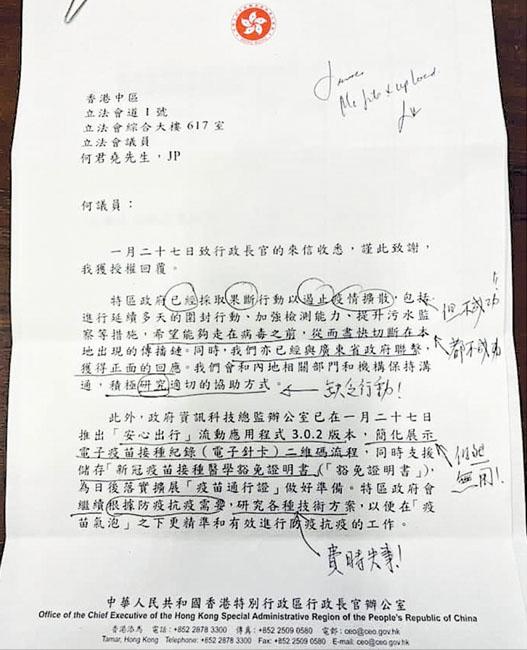 香港中區
立法會道 1 號
立法會綜合大樓 617 室
立法會議員
何君堯先生，JP
何議員：
一月二十七日致行政長官的來信收悉，謹此致謝，
我獲授權回覆。
特區政府已經採取果斷行動以遏止疫情擴散，包括
進行延續多天的圍封行動、加強檢測能力、提升污水監
察等措施，希望能夠走在病毒之前，從而盡快切斷在本
地出現的傳播鏈。同時，我們亦已經與廣東省政府聯繫，
獲得正面的回應。我們會和內地相關部門和機構保持溝
通，積極研究適切的協助方式。
但不成功!!
都不成功
缺乏行動！
此外，政府資訊科技總監辦公室已在一月二十七日
推出「安心出行」流動應用程式 3.0.2 版本，簡化展示
電子疫苗接種紀錄（電子針卡）二維碼流程，同時支援
儲存「新冠疫苗接種醫學豁免證明書」（「豁免證明書」），
為日後落實擴展「疫苗通行證」做好準備。特區政府會
繼續根據防疫抗疫需要，研究各種技術方案，以便在「疫
苗氣泡」之下更精準和有效進行防疫抗疫的工作。
無用！
費時失事！
中華人民共和國香港特別行政區行政長官辦公室
Office of the Chief Executive of the Hong Kong Special Administrative Region of the People's Republic of China
香港添馬 電話：+852 2878 3300 傳真：+852 2509 0580 電郵：ceo@ceo.gov.hk
Tamar, Hong Kong Telephone: +852 2878 3300 Fax: +852 2509 0580 E-mail: ceo@ceo.gov.hk